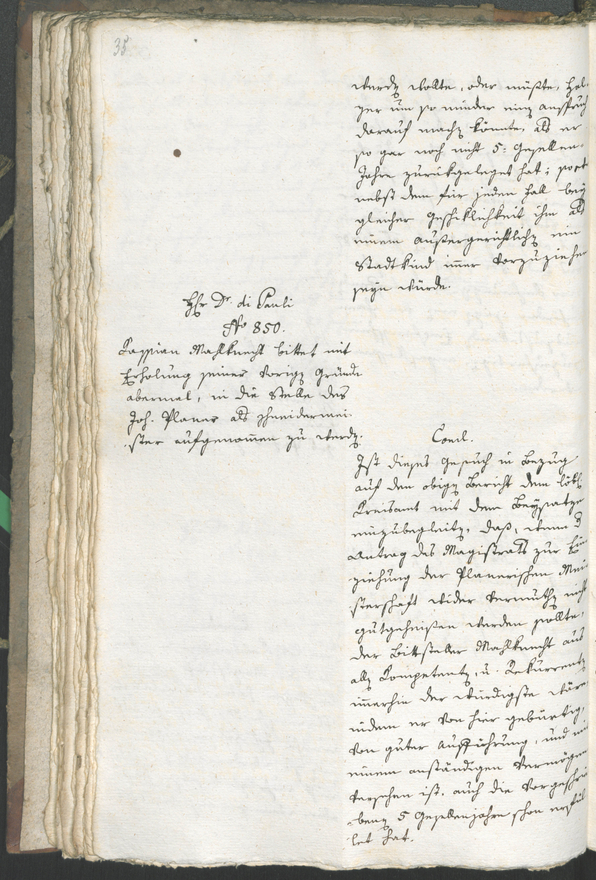 35.
werdẽ wollte, oder müßte, Hol-
zer um so minder einẽ Anspruch
darauf machẽ könnte, als er
so gar noch nicht 5: Gesellen-
Jahre zurükgeleget hat;
nebst dem für jeden Fall bey
gleicher Geschiklichkeit ihm als
einem Außergerichtlichẽ ein
Stadtkind im̃er vorzuziehe
seyn würde.
Hr Dr. di Pauli
No 850.
Kassian Mahlknecht bittet mit
Erholung seiner vorigẽ Gründe
abermal, in die Stelle des
Joh. Planer als Schneidermei-
ster aufgenom̃en zu werdẽ.
Concl.
Ist dieses Gesuch in Bezug
auf den obigẽ Bericht dem löbl.
Kreisamt mit dem Beysatze
einzubegleitẽ, daß, wenn d
Antrag des Magistrats zur Ein
ziehung der Planerischen Mei
sterschaft wider Vermuthẽ nicht
gutgeheißen werden sollte,
der Bittsteller Mahlknecht aus
allẽ Kompetentẽ, u. Rekurrentẽ
im̃erhin der würdigste wäre
indem er von hier gebürtig,
von guter Aufführung, und mi
einem anständigen Vermögen
versehen ist, auch die vorgeschrie
benẽ 5 Gesellenjahre schon erstül
let hat.